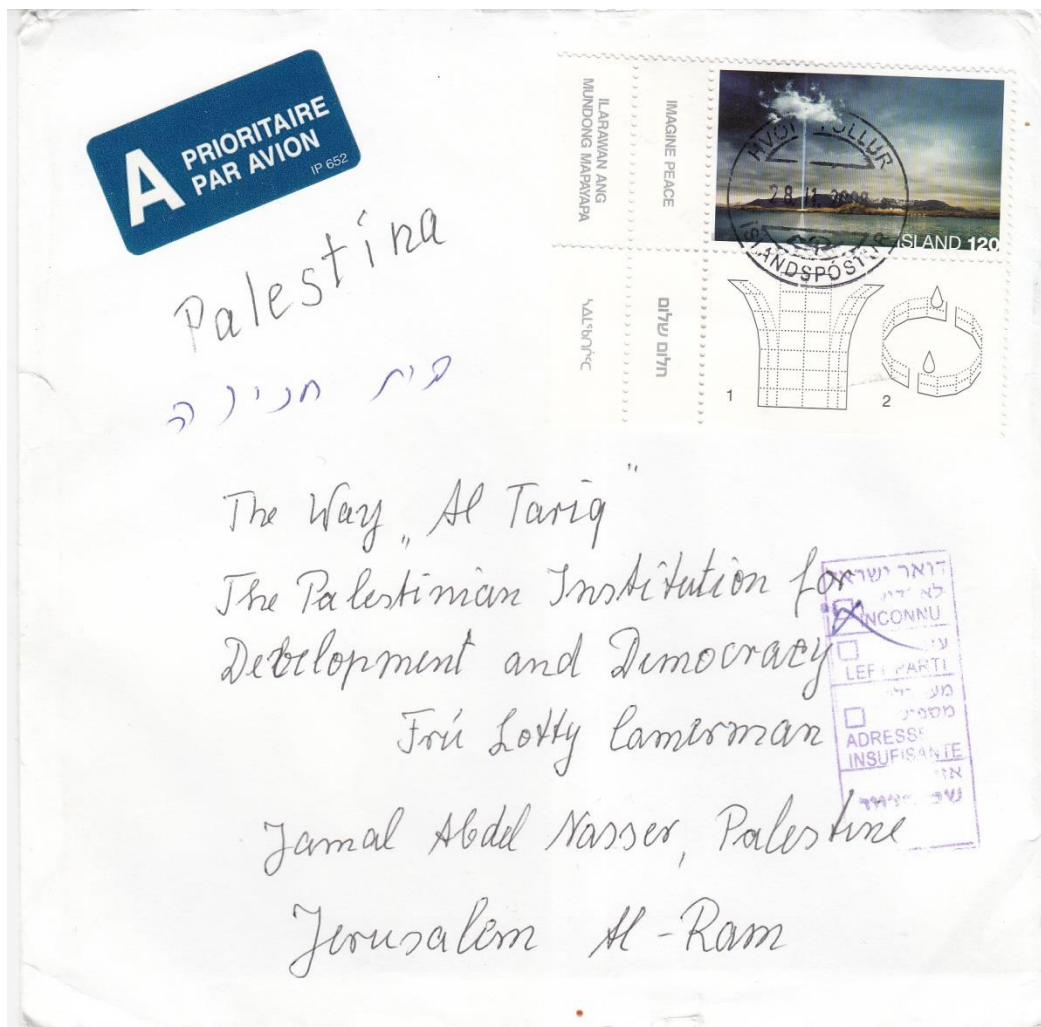 A PRIORITAIRE
PAR AVION
IP 652
ILARAWAN ANG
MUNDONG MAPAYAPA
IMAGINE PEACE
חלום שלום
28.11.
ÍSLANDSPÓSTUR
ISLAND 120
1
2
Palestina
בית חנינה
The Way „Al Tariq"
The Palestinian Institution for
Development and Democracy
Frú Lotty Camerman
Jamal Abdel Nasser, Palestine
Jerusalem Al-Ram
דואר ישראל
לא
INCONNU
LEFT PARTI
ADRESSE
INSUFISANTE